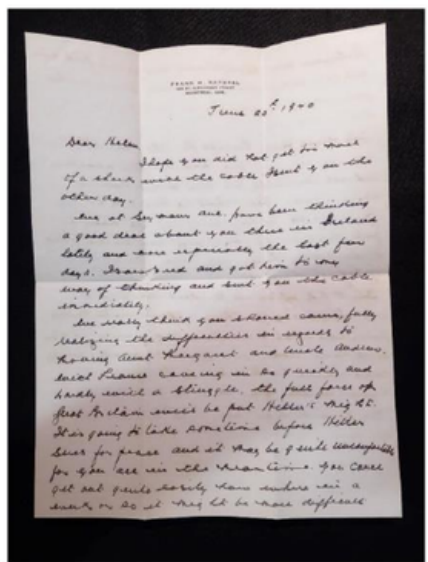 June 20th 1940
Dear Helen,
I hope you did not get too much
of a shock with the cable I sent you the
other day.
We at Seymour Ave. have been thinking
a good deal about you there in Ireland
lately and more especially the last few
days. I and got him to my
way of thinking and sent you the cable
immediately.
We really think you should come, fully
realizing the difficulties in regards to
leaving Aunt Margaret and Uncle Andrew.
With France caving in so quickly and
hardly with a struggle, the full force of
Great Britain must be put Hitler's might.
It is going to take sometime before Hitler
sues for peace and it may be quite uncomfortable
for you all in the meantime. You could
get out quite easily now where in a
week or so it might be more difficult